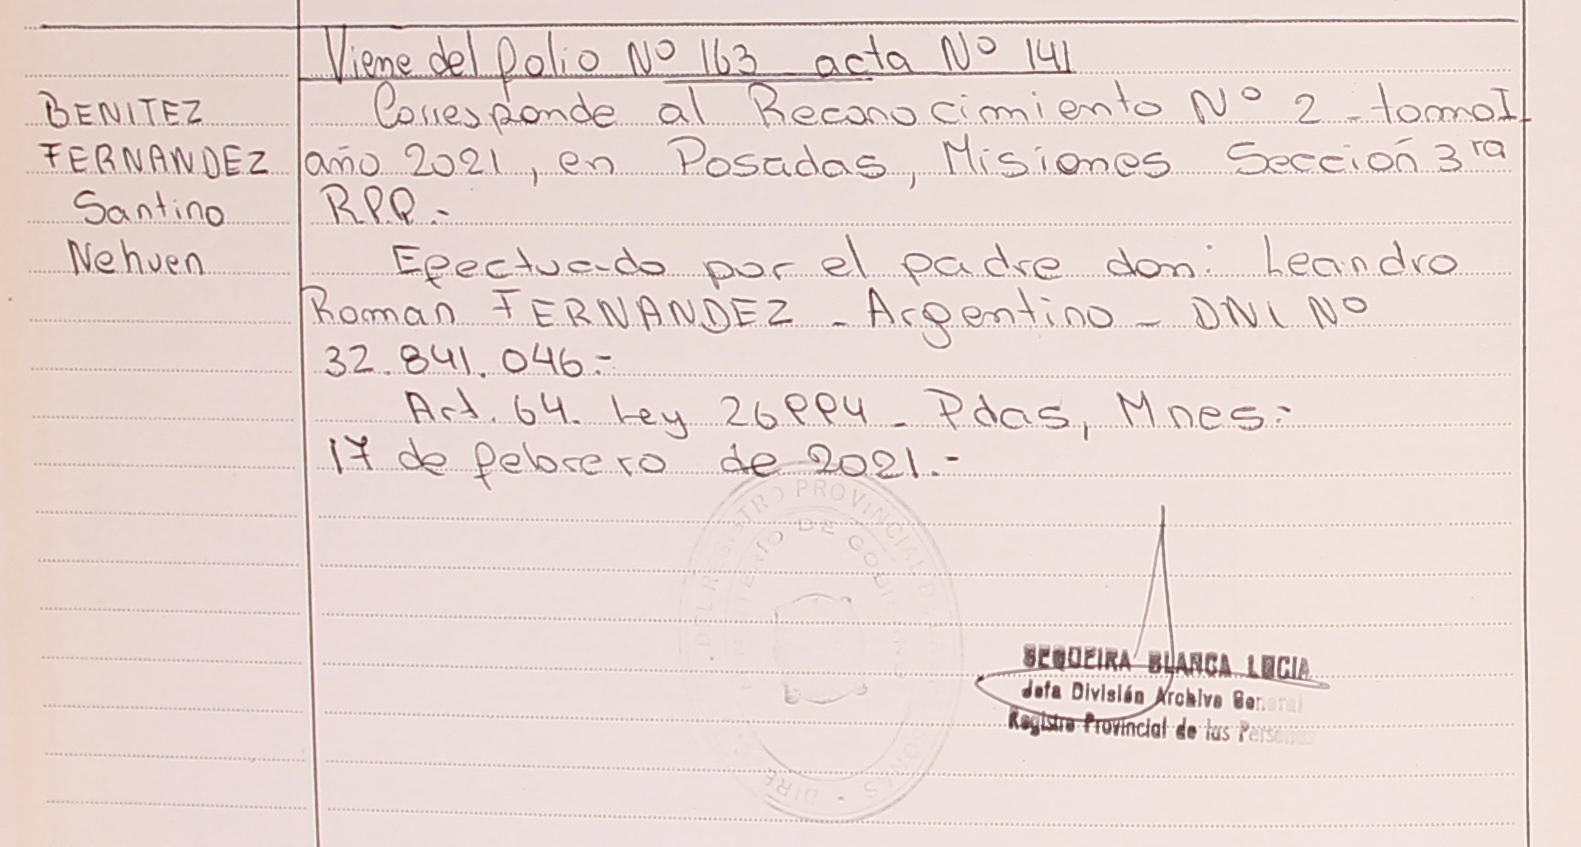 Viene del folio Nº 163 acta Nº 141
BENITEZ
FERNANDEZ
Santino
Nehuen
Corresponde al Reconocimiento Nº 2 - tomo I
año 2021, en Posadas, Misiones Sección 3ra
RPP.-
Efectuado por el padre don: Leandro
Roman FERNANDEZ - Argentino - DNI Nº
32.841.046.-
Art. 64. Ley 26994 - Pdas, Mnes:-
17 de febrero de 2021.-
REGISTRO PROVINCIAL DE
MINISTERIO DE GOBIERNO
SEQUEIRA BLANCA LUCIA
Jefa División Archivo General
Registro Provincial de las Personas